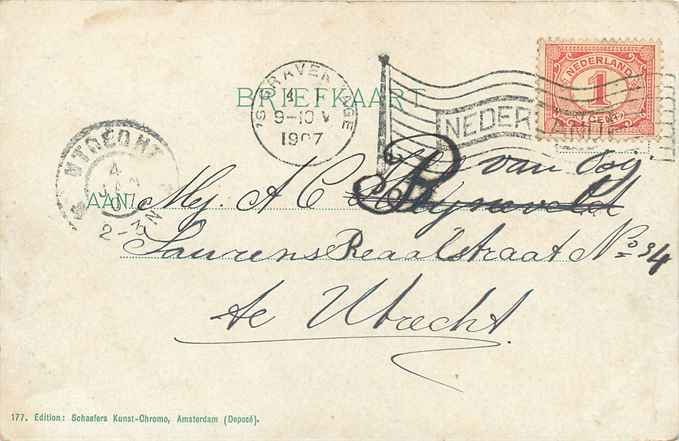 BRIEFKAART
'S GRAVENHAGE
4 1
9-10 V
1907
NEDERLAND
1
CENT
NEDERLAND
UTRECHT
4
JAN
2-3 N
van
AAN Mej. A C
Laurens Reaalstraat No 34
te Utrecht.
177. Edition: Schaefers Kunst-Chromo, Amsterdam (Deposé).